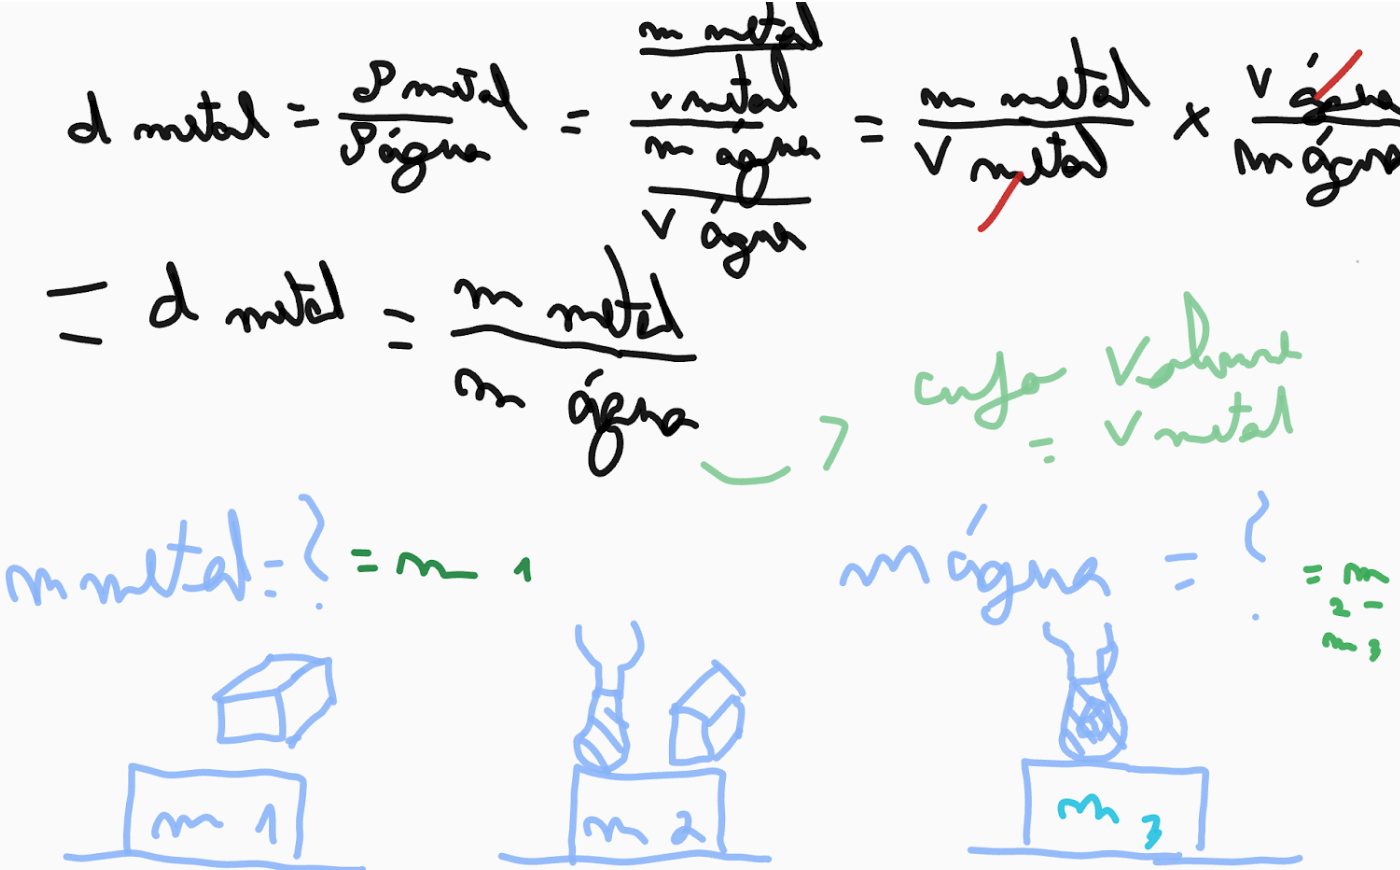 d metal = ρ metal / ρ água = m metal / v metal / m água / v água = m metal / v metal × v água / m água
= d metal = m metal / m água
cujo volume
= v metal
m metal = ? = m 1
m água = ? = m 2 - m 3
m 1
m 2
m 3